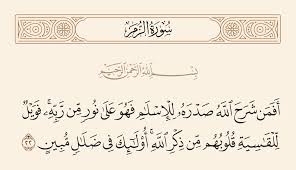 سُورَةُ الزُّمَرِ
بِسْمِ اللَّهِ الرَّحْمَٰنِ الرَّحِيمِ
أَفَمَن شَرَحَ اللَّهُ صَدْرَهُ لِلْإِسْلَامِ فَهُوَ عَلَىٰ نُورٍ مِّن رَّبِّهِ ۚ فَوَيْلٌ
لِّلْقَاسِيَةِ قُلُوبُهُم مِّن ذِكْرِ اللَّهِ ۚ أُولَٰئِكَ فِي ضَلَالٍ مُّبِينٍ ٢٢